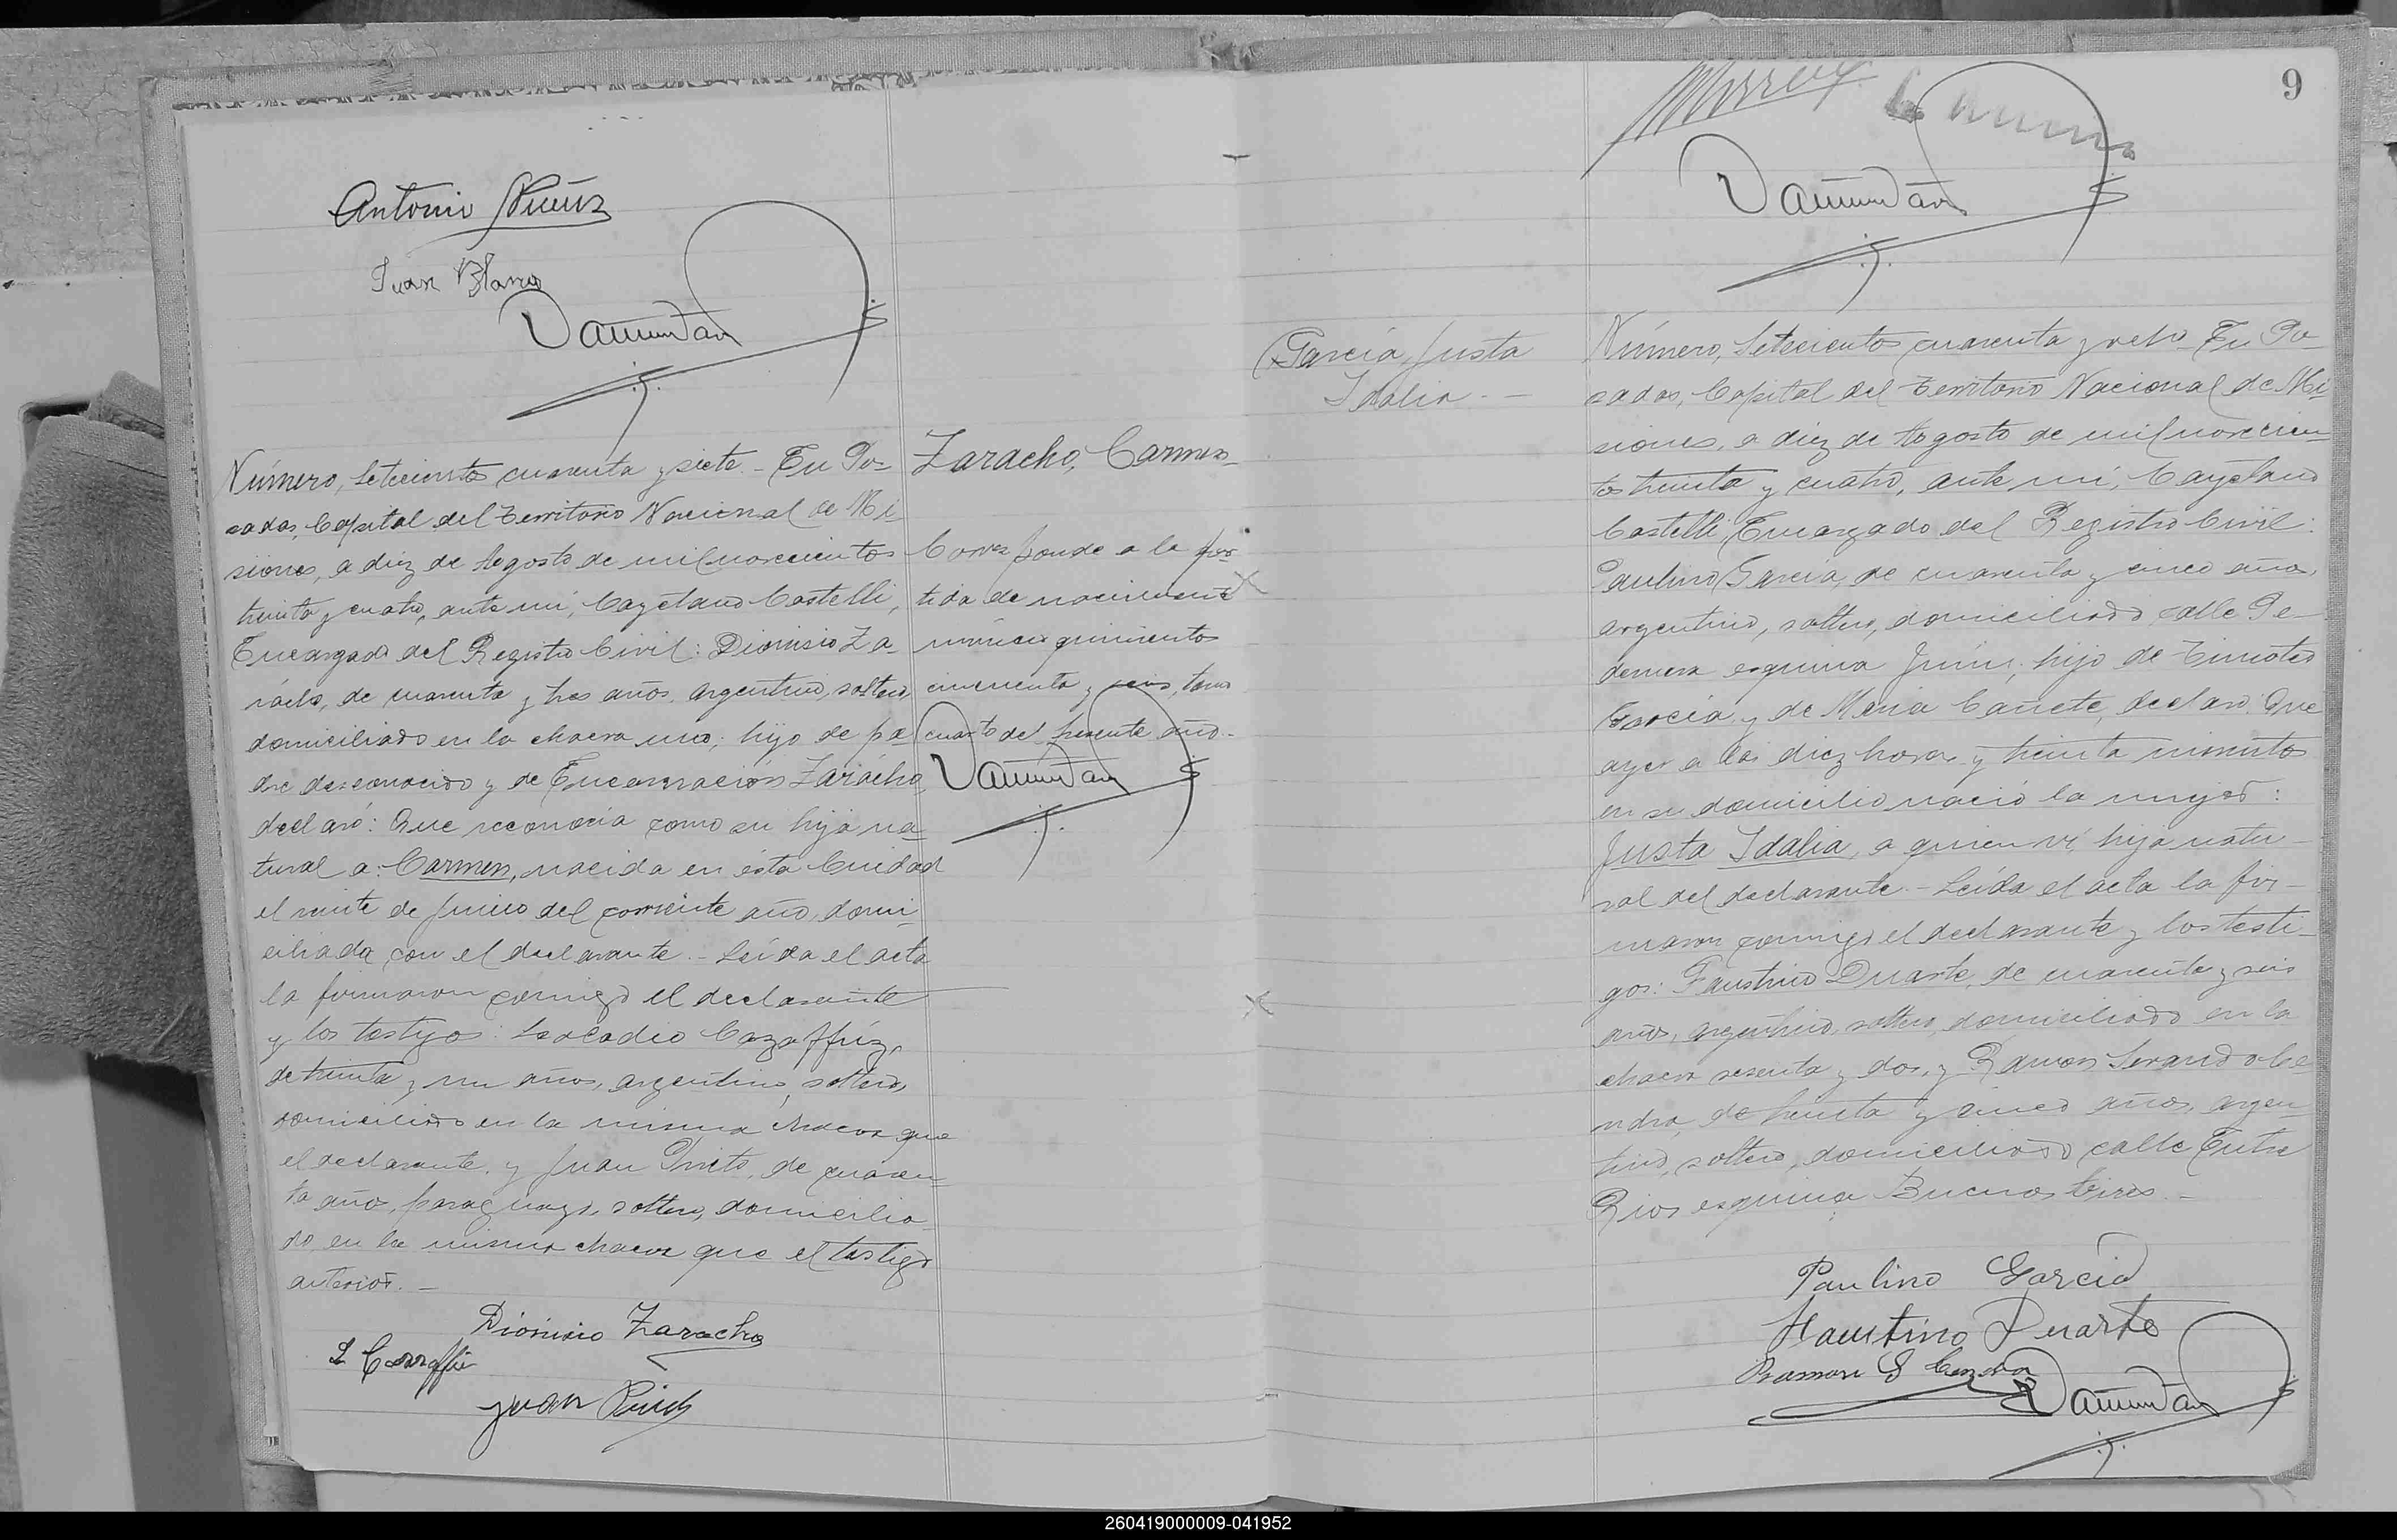 Antonio Nuñez
Juan Blanco
Número, Setecientos cuarenta y siete.- En Po-
sadas, Capital del Territorio Nacional de Mi-
siones, a diez de Agosto de mil novecientos
treinta y cuatro, ante mí, Cayetano Castelli,
Encargado del Registro Civil: Dionisio Za-
racho, de cuarenta y tres años, argentino, soltero,
domiciliado en la chacra uno; hijo de pa-
dre desconocido y de Encarnación Zaracho,
declaró: Que reconocía como su hija na-
tural a: Carmen, nacida en ésta Ciudad
el veinte de Junio del corriente año, domi-
ciliada con el declarante.- Leída el acta
la firmaron conmigo el declarante
y los testigos: Leocadio Cazaffúz,
de treinta y un años, argentino, soltero,
domiciliado en la misma chacra que
el declarante, y Juan Prieto, de cuaren-
ta año, paraguayo, soltero, domicilia-
do en la misma chacra que el testigo
anterior.-
Dionisio Zaracho
Juan
Zaracho, Carmen-
Corresponde a la par-
tida de nacimiento
número quinientos
cincuenta y seis, tomo
cuarto del presente año.-
9
García, Justa
Idalia.-
Número, Setecientos cuarenta y ocho. En Po-
sadas, Capital del Territorio Nacional de Mi-
siones, a diez de Agosto de mil novecien-
tos treinta y cuatro, ante mí, Cayetano
Castelli, Encargado del Registro Civil:
Paulino García, de cuarenta y cinco años,
argentino, soltero, domiciliado calle Pe-
dernera esquina Junin; hijo de Timoteo
García y de María Cañete, declaró: Que
ayer a las diez horas y treinta minutos
en su domicilio nació la mujer:
Justa Idalia, a quien ví, hija natu-
ral del declarante.- Leída el acta la fir-
maron conmigo el declarante y los testi-
gos: Faustino Duarte, de cuarenta y seis
años, argentino, soltero, domiciliado en la
chacra sesenta y dos, y Ramon Serando Ce-
ndra, de treinta y cinco años, argen-
tino, soltero, domiciliado calle Entre
Rios esquina Buenos Aires.-
Paulino Garcia
Faustino Duarte
Ramon S Cendra
260419000009-041952